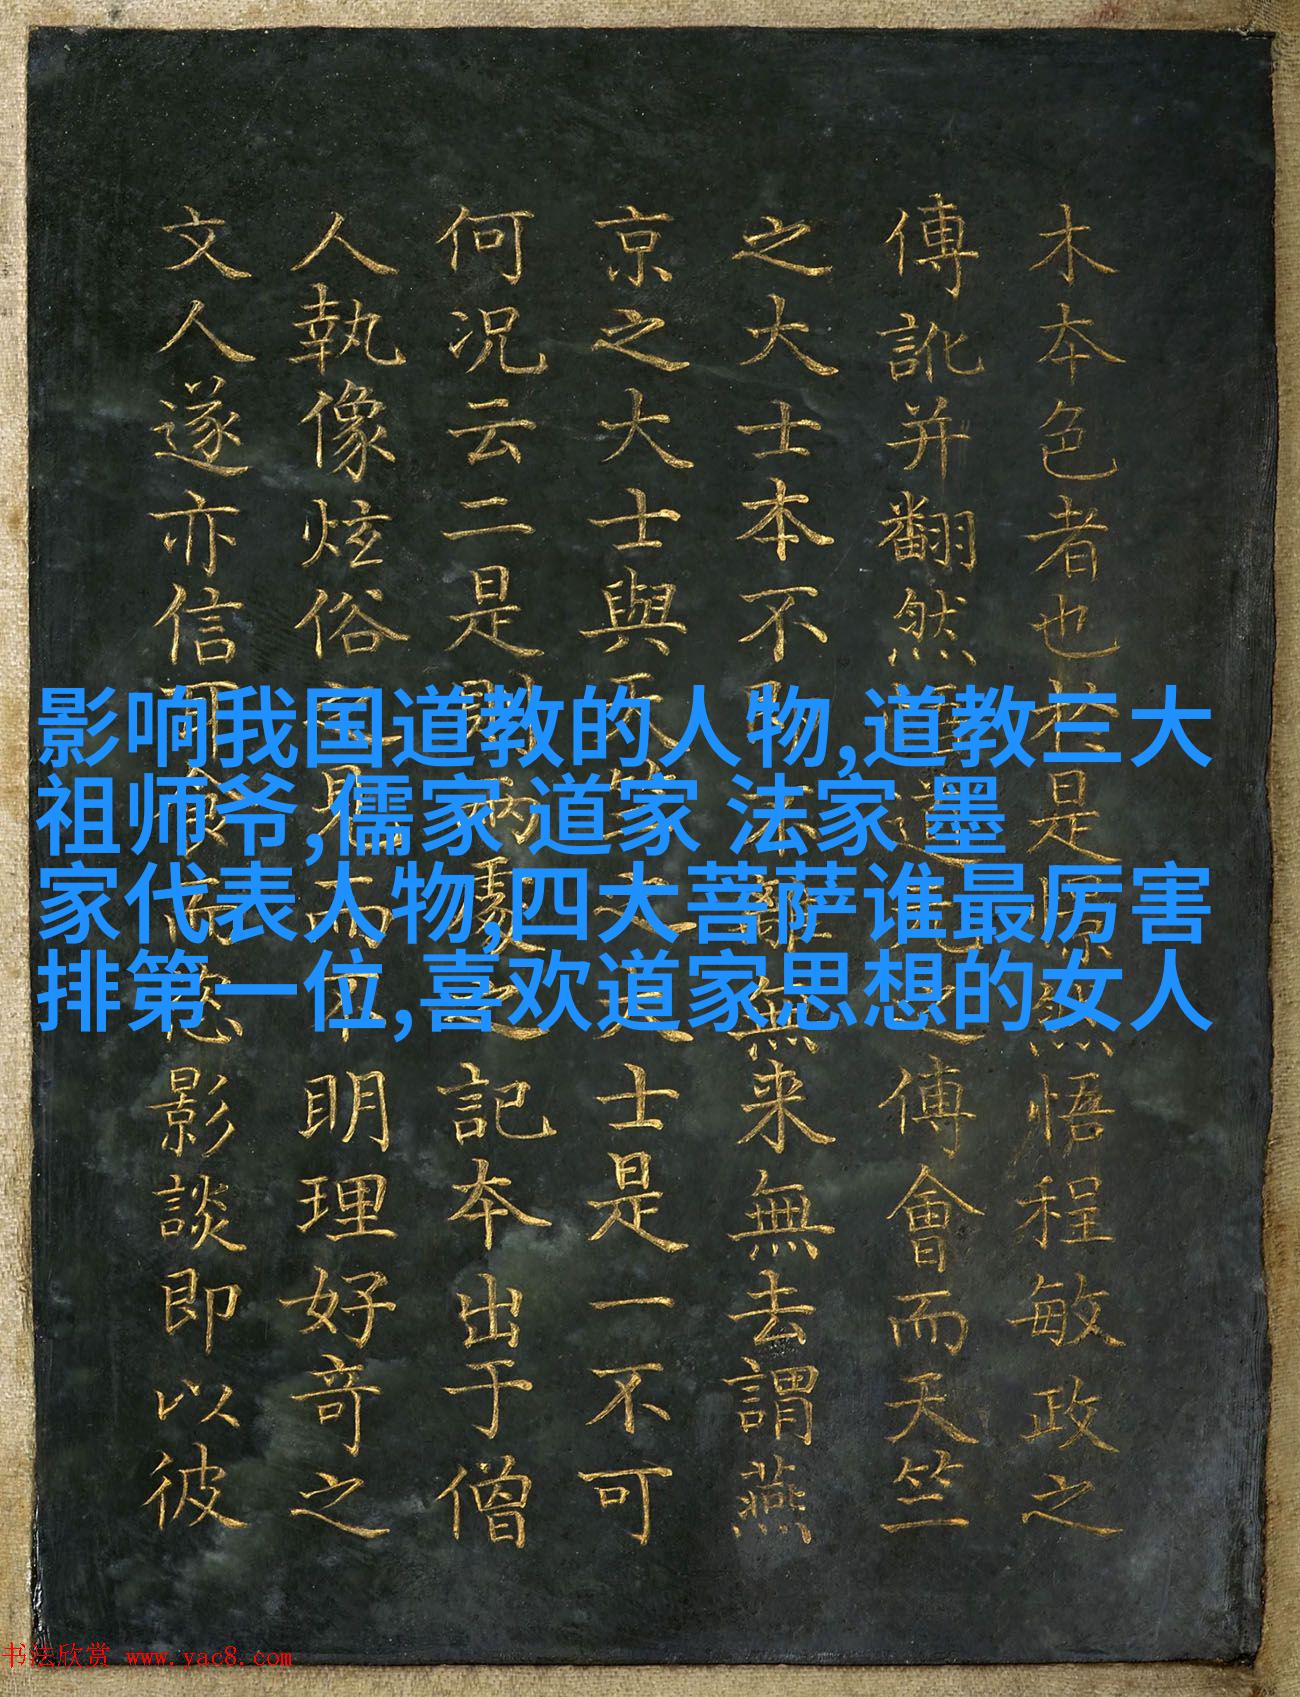 木夲色者也於是然悟程敏政之
傅訛并翻然道之傅會而天竺
之大士本不不離無来無去謂燕
京之大士與天竺之大士是一不可
何况云二是則病之記夲出于僧
人執像炫俗之見而不明理好奇之
文人遂亦信耳食而影談即以彼
影响我国道教的人物,道教三大
祖师爷,儒家 道家 法家 墨
家代表人物,四大菩萨谁最厉害
排第一位,喜欢道家思想的女人
书法欣赏 www.yac8.com